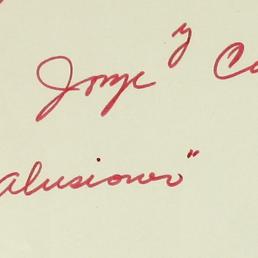 Jorge y Ca
alusiones"